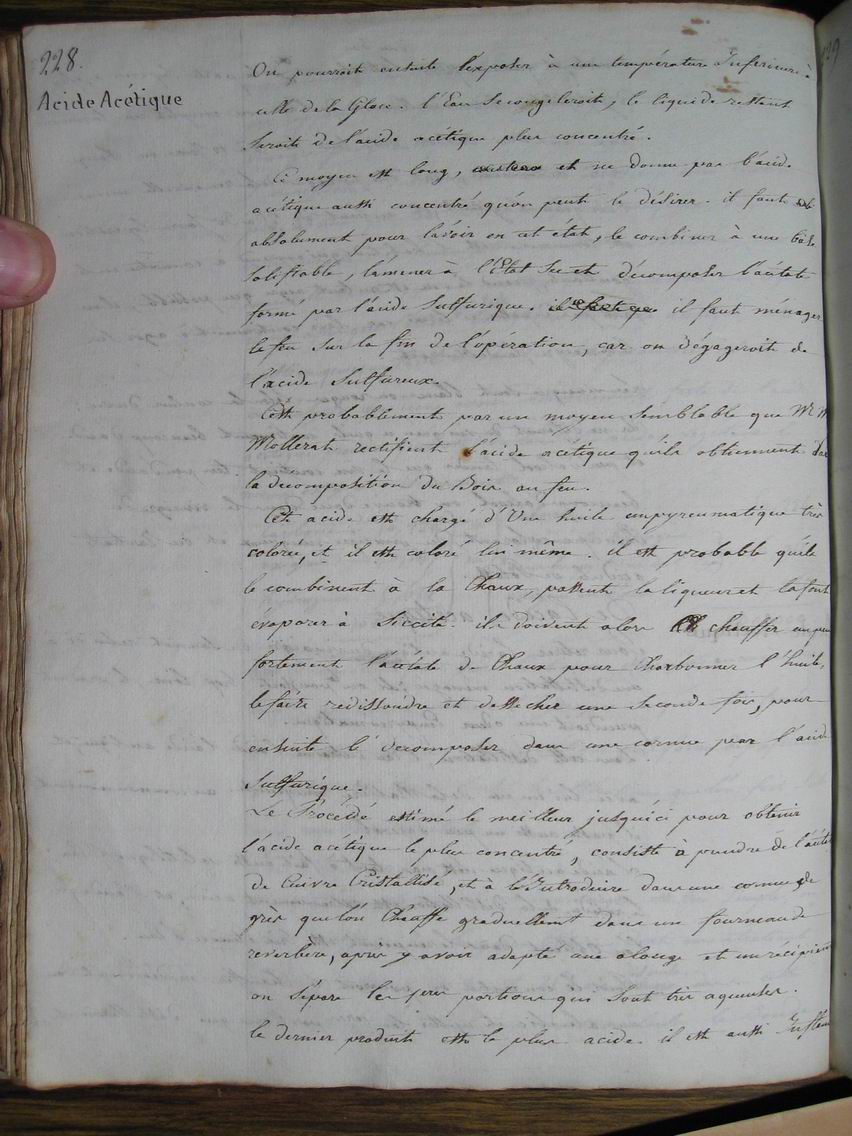 228.
Acide Acétique
On pourroit ensuite l'exposer à une température Inférieure à
celle de la Glace. l'Eau Se congeleroit, le liquide restant
Seroit de l'acide acétique plus concentré.
Ce moyen est long, et ne donne pas l'acide
acétique aussi concentré qu'on peut le désirer. il faut
absolument pour l'avoir en cet état, le combiner à une base
Salifiable, l'amener à l'État Sec et décomposer l'acétate
formé par l'acide Sulfurique. il faut ménager
le feu Sur la fin de l'opération, car on dégageroit de
l'acide Sulfureux.
C'est probablement par un moyen Semblable que Mrs
Mollerat rectifient l'acide acétique qu'ils obtiennent par
la décomposition du Bois au feu.
Cet acide est chargé d'Une huile empyreumatique très
colorée, et il est coloré lui même. il est probable qu'ils
le combinent à la Chaux, passent la liqueur et la font
évaporer à Siccité. ils doivent alors chauffer un peu
fortement l'acétate de Chaux pour Charbonner l'huile,
le faire redissoudre et dessecher une Seconde fois, pour
ensuite le decomposer dans une cornue par l'acide
Sulfurique.
Le Procédé estimé le meilleur jusqu'ici pour obtenir
l'acide acétique le plus concentré, consiste à prendre de l'acétate
de Cuivre Cristallisé, et à l'Introduire dans une cornue de
grès que l'on Chauffe graduellement dans un fourneau de
reverbère, après y avoir adapté une alonge et un récipient
on Sépare les 1eres portions qui Sont très aqueuses.
le dernier produit est le plus acide il est aussi Inflam